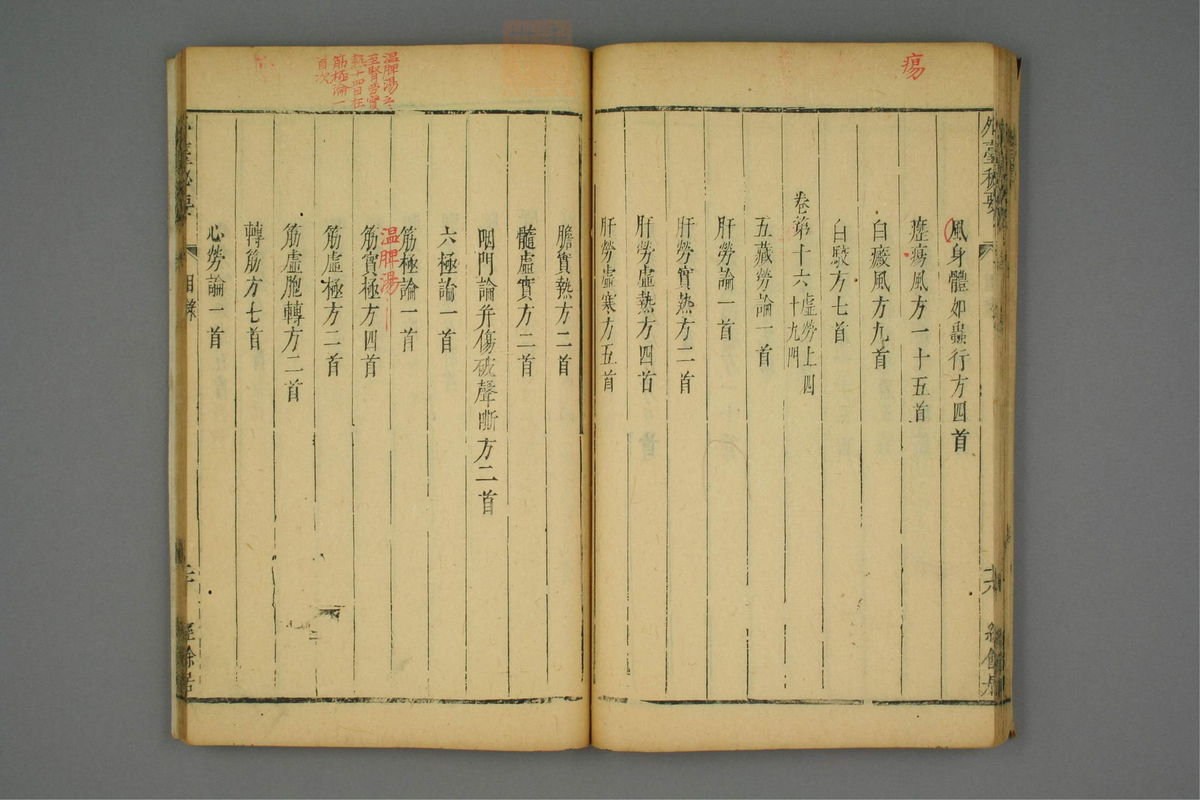 瘍
外臺秘要
風身體如蟲行方四首
癧瘍風方一十五首
白癜風方九首
白駮方七首
卷第十六 虛勞上四十九門
五藏勞論一首
肝勞論一首
肝勞實熱方二首
肝勞虛熱方四首
肝勞虛寒方五首
膽實熱方二首
髓虛實方二首
咽門論并傷破聲嘶方二首
六極論一首
筋極論一首
溫脾湯
筋實極方四首
筋虛極方二首
筋虛胞轉方二首
轉筋方七首
心勞論一首
目錄
經餘居